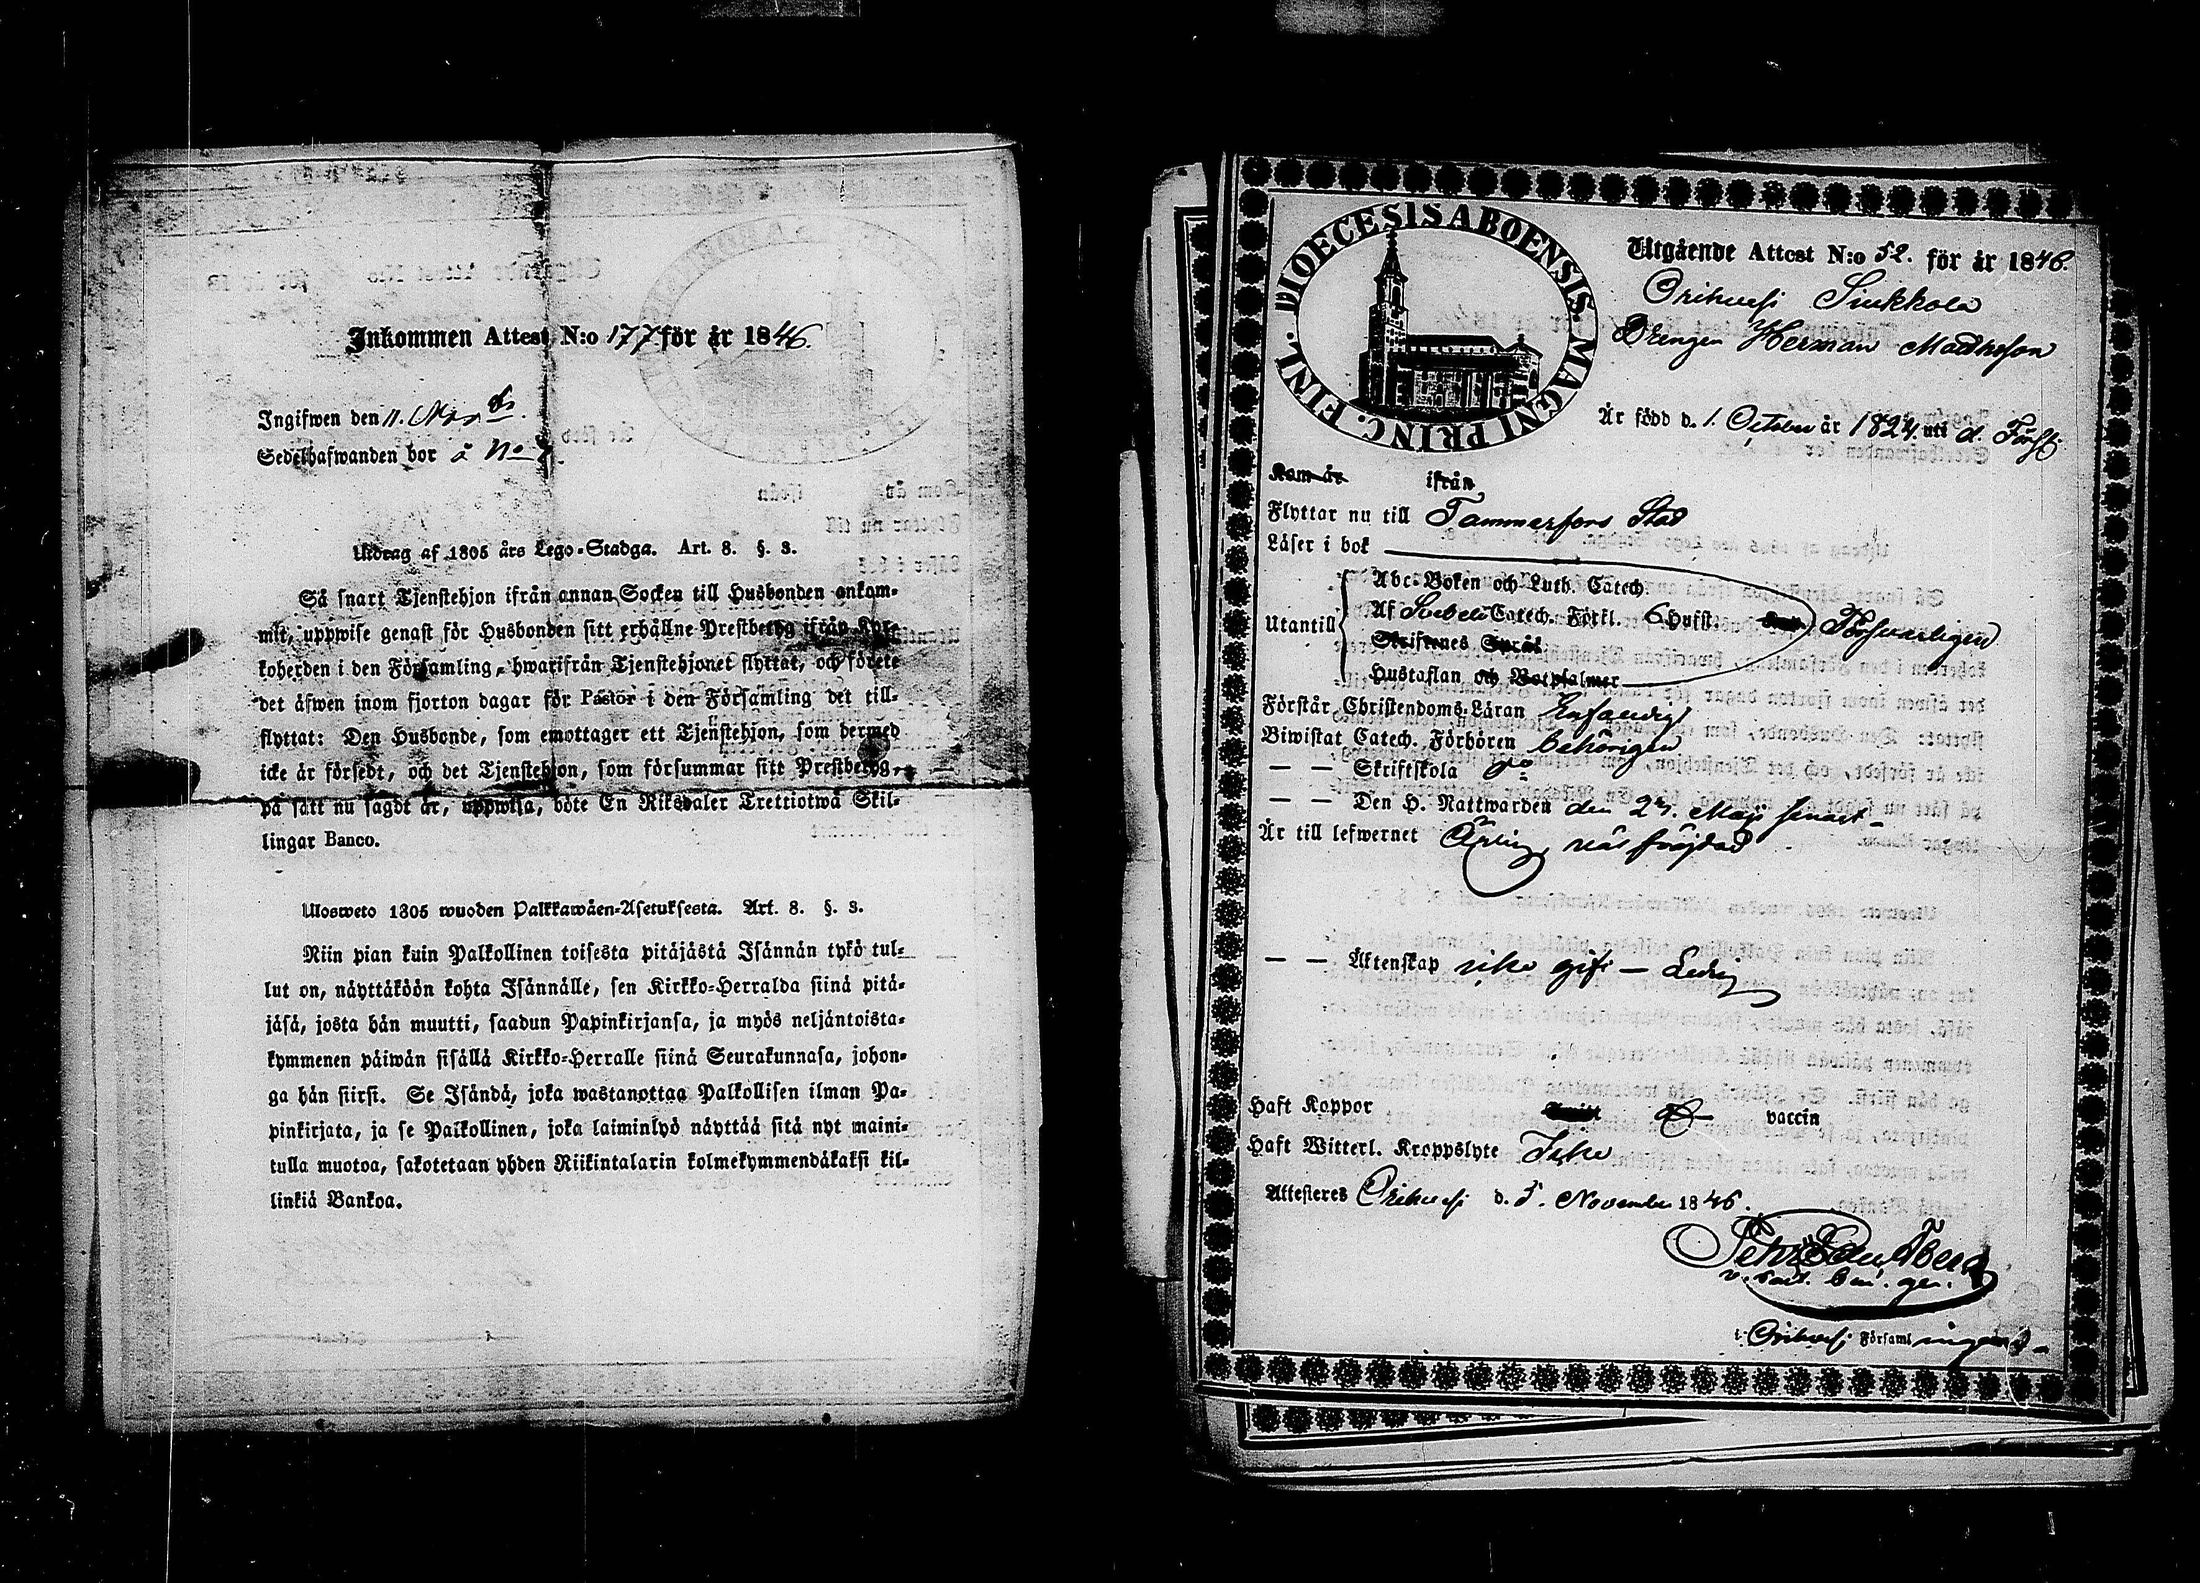 Inkommen Attest N:o 177 för år 1846.
Ingifwen den 11. Nov
Sedelhafwanden bor å No
Utdrag af 1805 års Lego-Stadga. Art. 8. §. 3.
Så snart Tjenstehjon ifrån annan Socken till Husbonden ankom-
mit, uppwise genast för Husbonden sitt erhållne Prestbetyg ifrån Kyr-
koherden i den Församling, hwarifrån Tjenstehjonet flyttat, och förete
det äfwen inom fjorton dagar för Pastor i den Församling det till-
flyttat: Den Husbonde, som emottager ett Tjenstehjon, som dermed
icke är försedt, och det Tjenstehjon, som försummar sitt Prestbetyg,
på sätt nu sagdt är, uppwisa, böte En Riksdaler Trettiotwå Skil-
lingar Banco.
Ulosweto 1805 wuoden Palkkawäen-Asetuksesta. Art. 8. §. 3.
Niin pian kuin Palkollinen toisesta pitäjästä Isännän tykö tul-
lut on, näyttäköön kohta Isännälle, sen Kirkko-Herralda siinä pitä-
jäsä, josta hän muutti, saadun Papinkirjansa, ja myös neljäntoista-
kymmenen päiwän sisällä Kirkko-Herralle siinä Seurakunnasa, johon-
ga hän siirsi. Se Isändä, joka wastanottaa Palkollisen ilman Pa-
pinkirjata, ja se Palkollinen, joka laiminlyö näyttää sitä nyt maini-
tulla muotoa, sakotetaan yhden Riikintalarin kolmekymmendäkaksi kil-
linkiä Bankoa.
DIOECESIS ABOENSIS. MAGNI PRINC. FINL.
Utgående Attest N:o 52. för år 1846.
Orihvesi Sinkkola
Drengen Herman Mathsson
Är född d. 1. October år 1824. uti d. Förs:
Kom år ifrån
Flyttar nu till Tammerfors Stad
Läser i bok
Abc-Boken och Luth. Catech.
Utantill Af Svebeli Catech. Förkl. 6 Hufst. Försvarligen
Skriftenes Språk
Hustaflan och Botpsalmer
Förstår Christendoms-Läran Enfaldigt
Biwistat Catech. Förhören behörigen
— — Skriftskola do
— — Den H. Nattwarden den 24. Maji senast
Är till lefwernet Ärlig, väl fräjdad
— — Äktenskap icke gift — Ledig
Haft Koppor vaccin
Haft Witterl. Kroppslyte Icke
Attesteres Orihvesi d. 5. November 1846.
v. Past.
i Orihvesi Församlingen